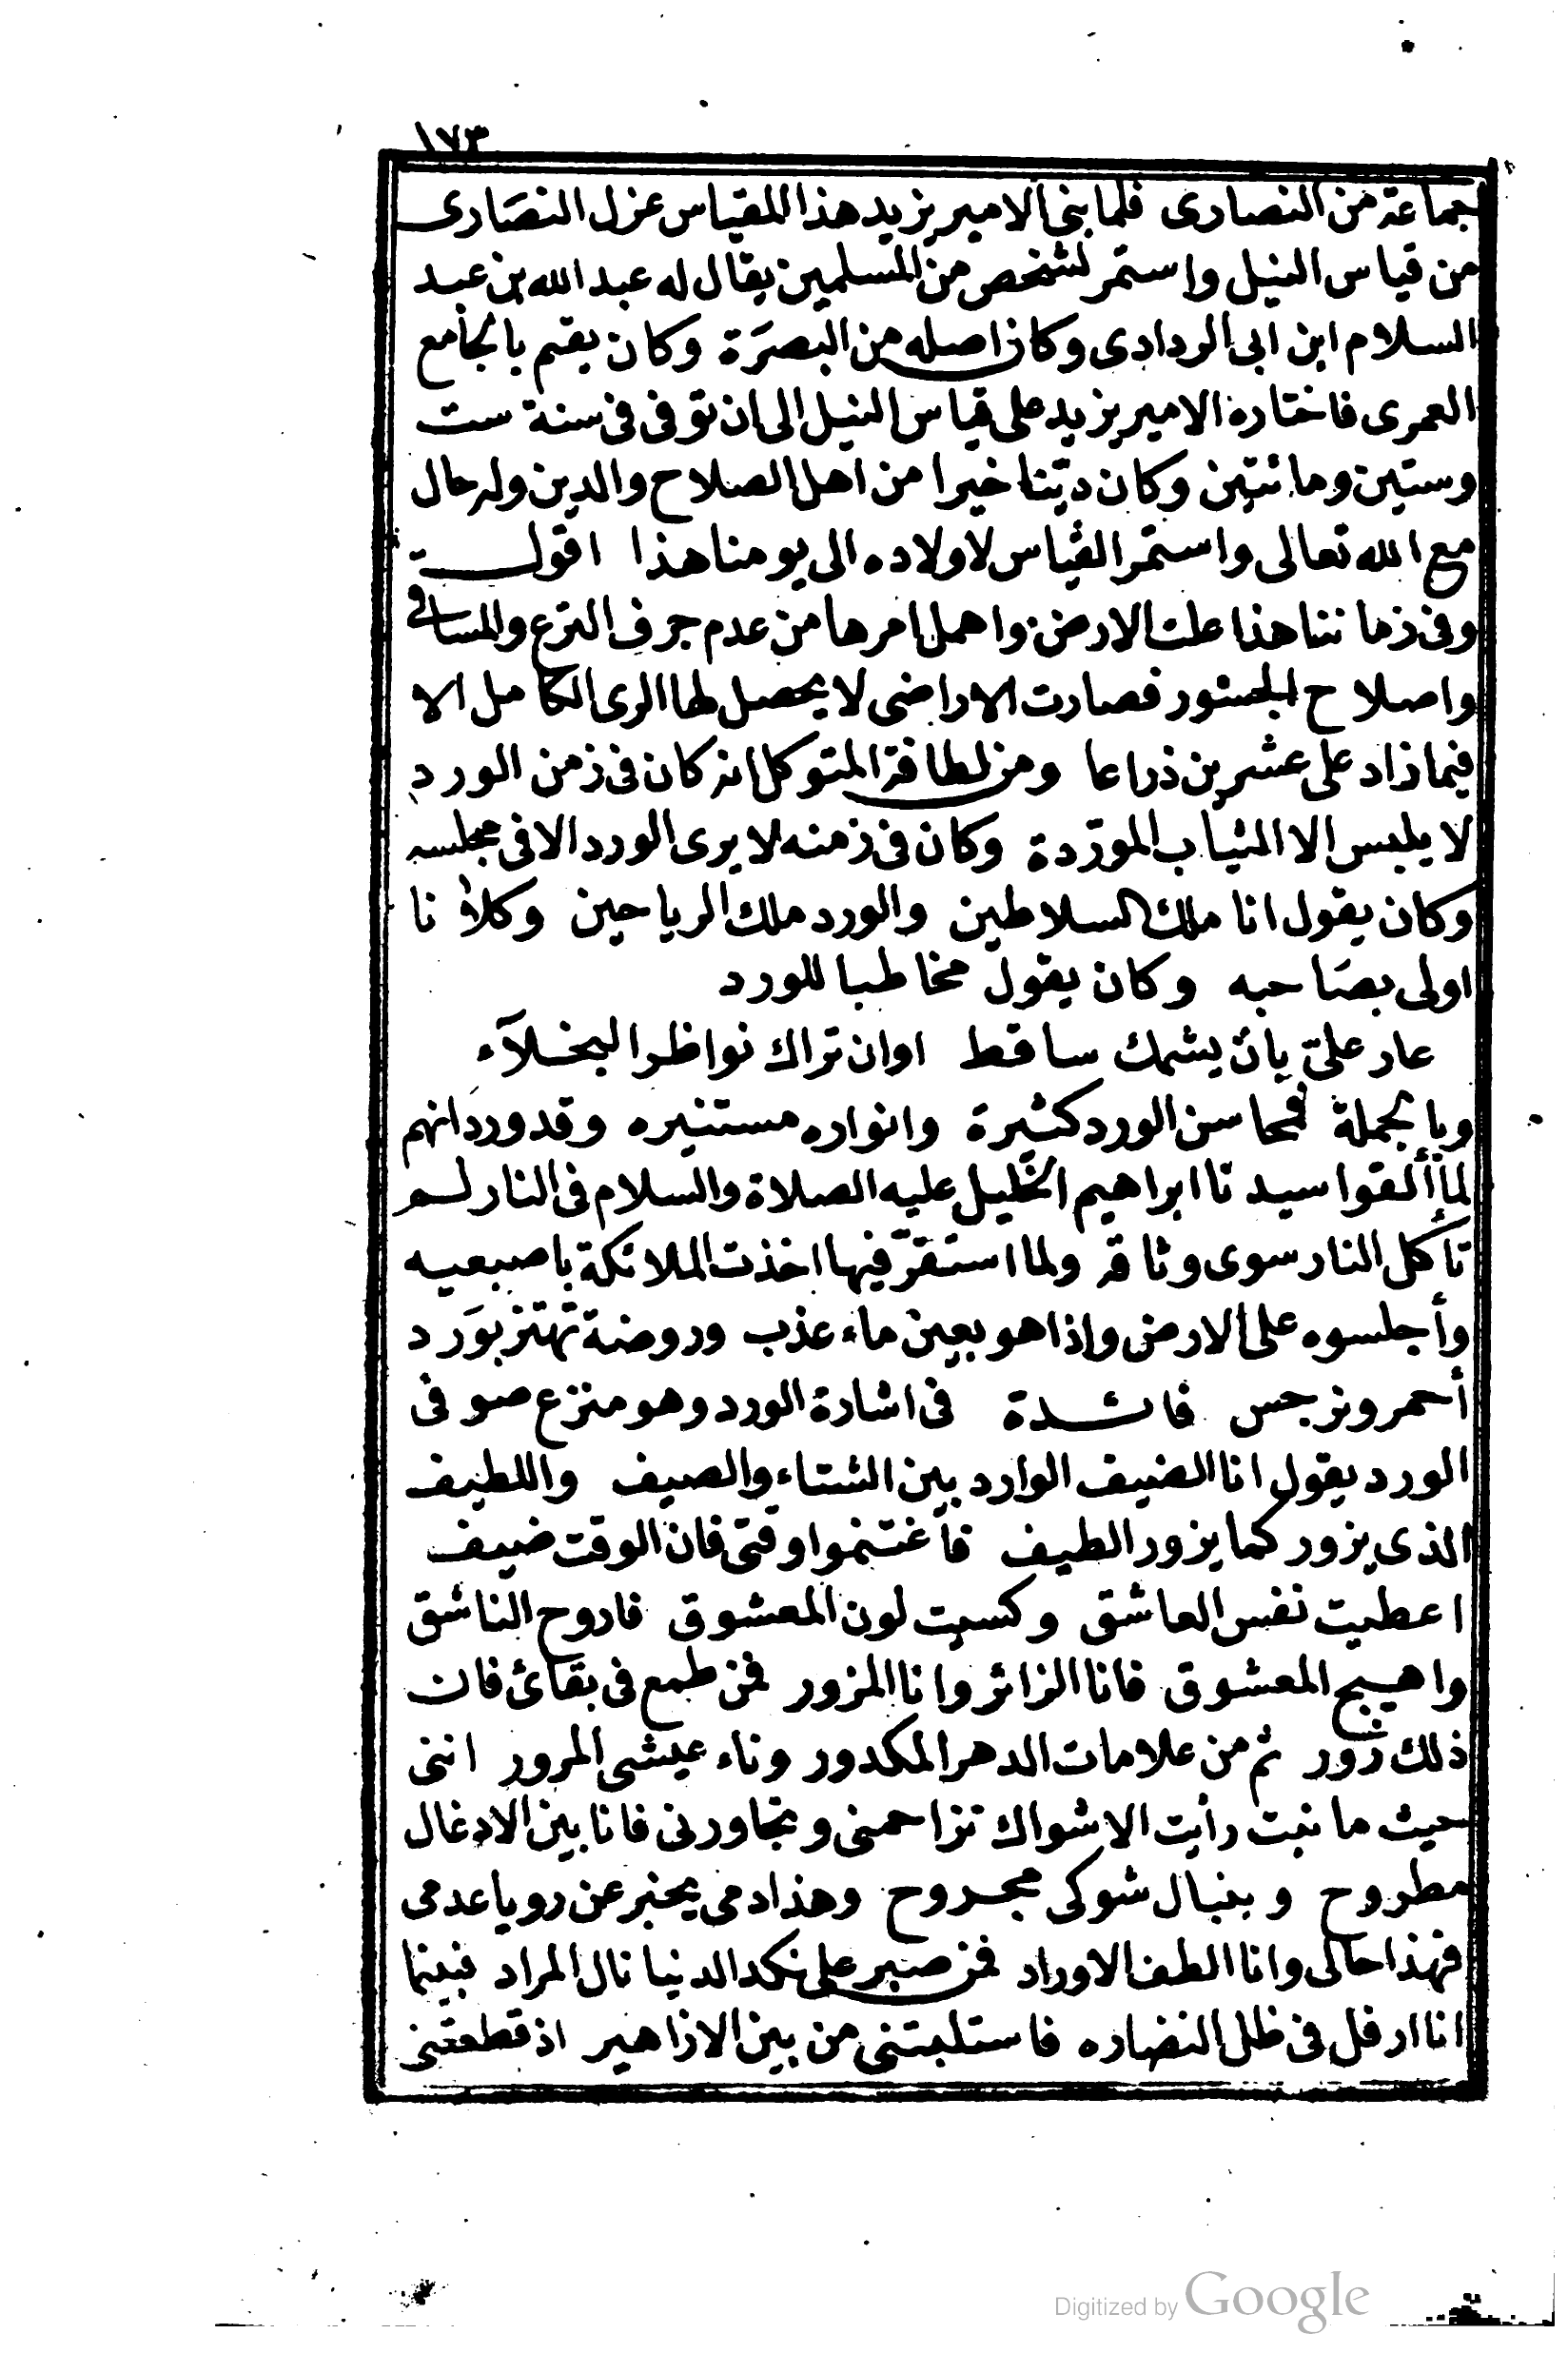 ١٧٣
جماعة من النصارى فلما بنى الامير يزيد هذا المقياس عزل النصَارى
من قياس النيل واستمر لشخص من المسلمين يقال له عبد الله بن عبد
السلام ابن ابى الردادى وكان اصله من البصَرَة وكان يقم بالجامع
العمرى فاختاره الامير يزيد على قياس النيل الى ان توفى فى سنة ست
وستين ومائتين وكان ديّنا خيرا من اهل الصلاح والدين وله حال
مع الله تعالى واستمر القياس لاولاده الى يومنا هذا اقول
وفى زماننا هذا علت الارض واهمل امرها من عدم جرف الترع والمساقى
واصلاح الجسور فصارت الاراضى لا يحصل لها الرى الكامل الا
فيما زاد على عشرين ذراعا ومن لطافة المتوكل انه كان فى زمن الورد
لا يلبس الا الثياب المورّدة وكان فى زمنه لا يرى الورد الا فى مجلسه
وكان يقول انا ملك السلاطين والورد ملك الرياحين وكلانا
اولى بصَاحبه وكان يقول مخاطبا للورد
عار علىّ بان يشمك ساقط اوان تراك نواظر البخلآء
وبالجملة فمحاسن الورد كثيرة وانواره مستنيره وقد ورد انهم
لما ألقوا سيدنا ابراهيم الخليل عليه الصلاة والسلام فى النار لم
تأكل النار سوى وثاقه ولما استقرّ فيها اخذت الملائكة باصبعيه
وأجلسوه على الارض واذا هو بعين ماء عذب وروضة تهتز بوَرد
أحمر ونرجس فائدة فى اشارة الورد وهو منزع صوفى
الورد يقول انا الضيف الوارد بين الشتاء والصيف واللطيف
الذى يزور كما يزور الطيف فاغتنموا وقتى فان الوقت ضيف
اعطيت نفس العاشق وكسيت لون المعشوق فاروح الناشق
واهيج المعشوق فانا الزائر وانا المزور فمن طمع فى بقائ فان
ذلك زور ثم من علامات الدهر المكدور وناء عيشى المرور اننى
حيث ما نبت رأيت الاشواك تزاحمنى وتجاورنى فانا بين الادغال
مطروح وبنبال شوكى مجروح وهذا دمى يخبر عن رويا عدمى
فهذا حالى وانا الطف الاوراد فمن صبر على نكد الدنيا نال المراد فبينما
انا ارفل فى ظلل النضاره فاستلبتنى من بين الازاهير اذ قطعتنى
Digitized by Google